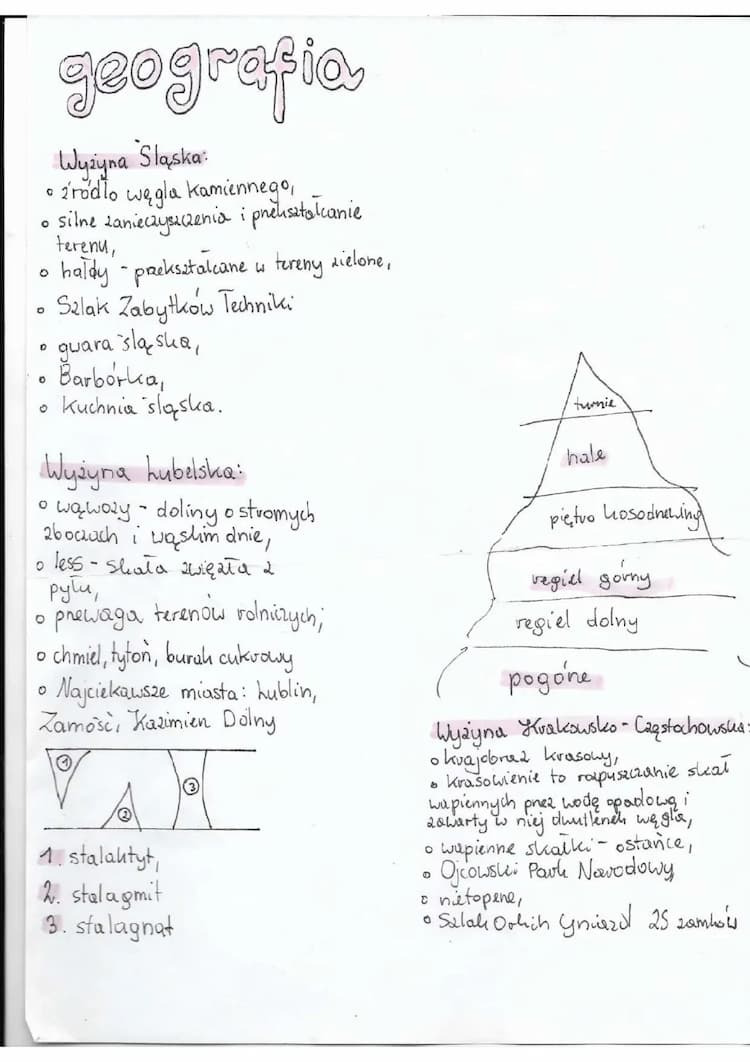 geografia
Wyżyna Śląska:
o źródło węgla kamiennego,
o silne zanieczyszczenia i przekształcanie
terenu,
o hałdy - przekształcane w tereny zielone,
o Szlak Zabytków Techniki
o gwara śląska,
o Barbórka,
o Kuchnia śląska.
Wyżyna Lubelska:
o wąwozy - doliny o stromych
zboczach i wąskim dnie,
o less - skała zwięzła z
pyłu,
o przewaga terenów rolniczych;
o chmiel, tytoń, burak cukrowy
o Najciekawsze miasta: Lublin,
Zamość, Kazimierz Dolny
1
2
3
1. stalaktyt,
2. stalagmit
3. stalagnat
turnie
hale
piętro kosodrzewiny
regiel górny
regiel dolny
pogórze
Wyżyna Krakowsko - Częstochowska:
o krajobraz krasowy,
o Krasowienie to rozpuszczanie skał
wapiennych przez wodę opadową i
zawarty w niej dwutlenek węgla,
o wapienne skałki - ostańce,
o Ojcowski Park Narodowy
o nietoperze,
o Szlak Orlich Gniazd 25 zamków